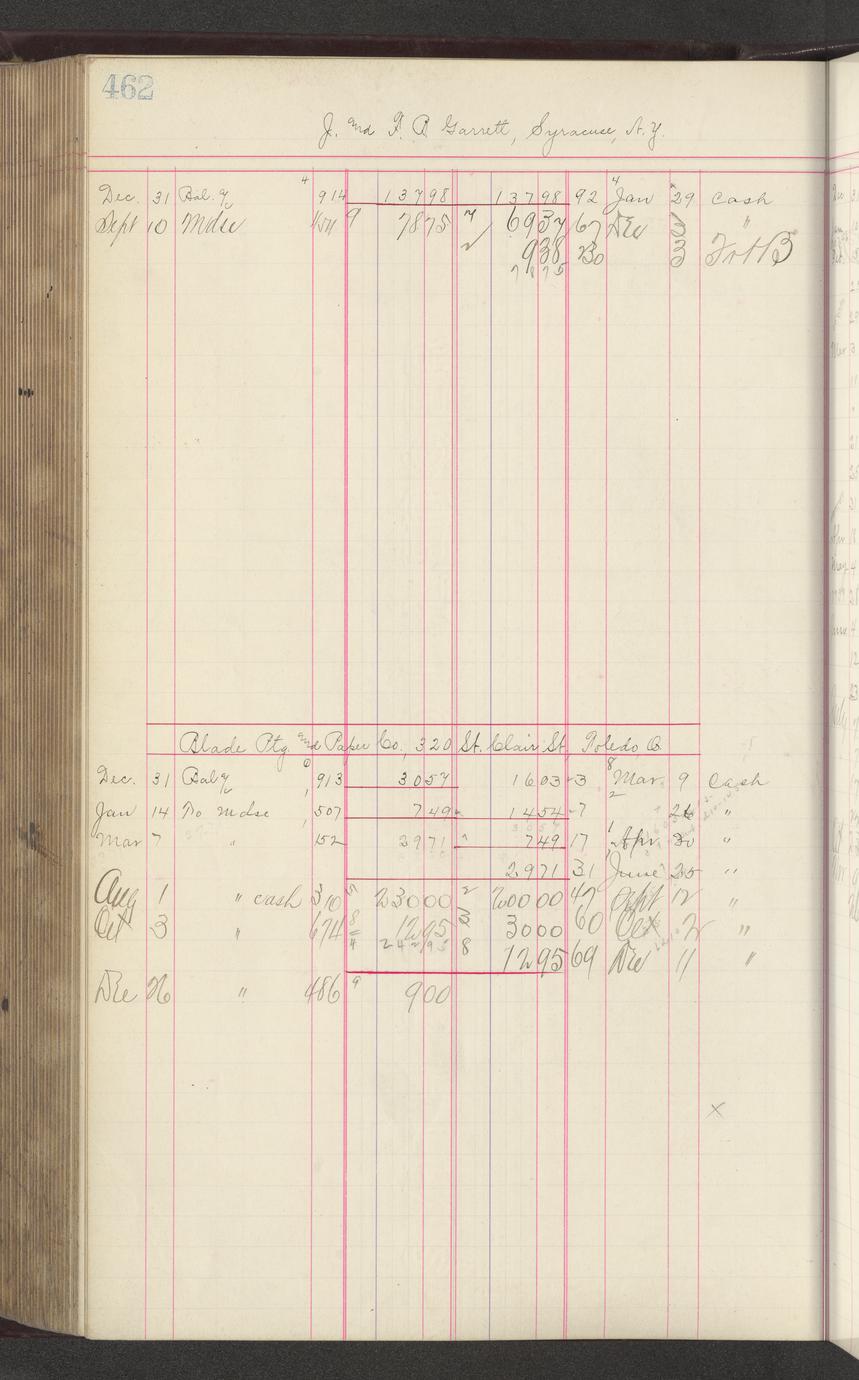 462
J. and F. B. Garrett, Syracuse, N.Y.
Dec. 31 Bal. 4 914 137 98 137 98 92 4 Jan 29 Cash
Sept 10 Mdse 9 78 75 7 69 37 67 Dec 3 "
2 9 38 Bo 3 Frt B
78 75
Blade Ptg. and Paper Co., 320 St. Clair St. Toledo O.
Dec. 31 Bal 6 913 30 57 16 03 3 8 Mar 9 Cash
Jan 14 To Mdse 1 507 7 49 14 54 7 2 26 "
Mar 7 " 152 29 71 7 49 17 1 Apr 20 "
29 71 31 June 25 "
Aug 1 " cash 310 5 230 00 2 200 00 47 Sept 12 "
Oct 3 " 674 8 12 95 3 30 00 60 Oct 2 "
4 242 95 8 12 95 69 Dec 11 "
Dec 26 " 486 9 9 00
x